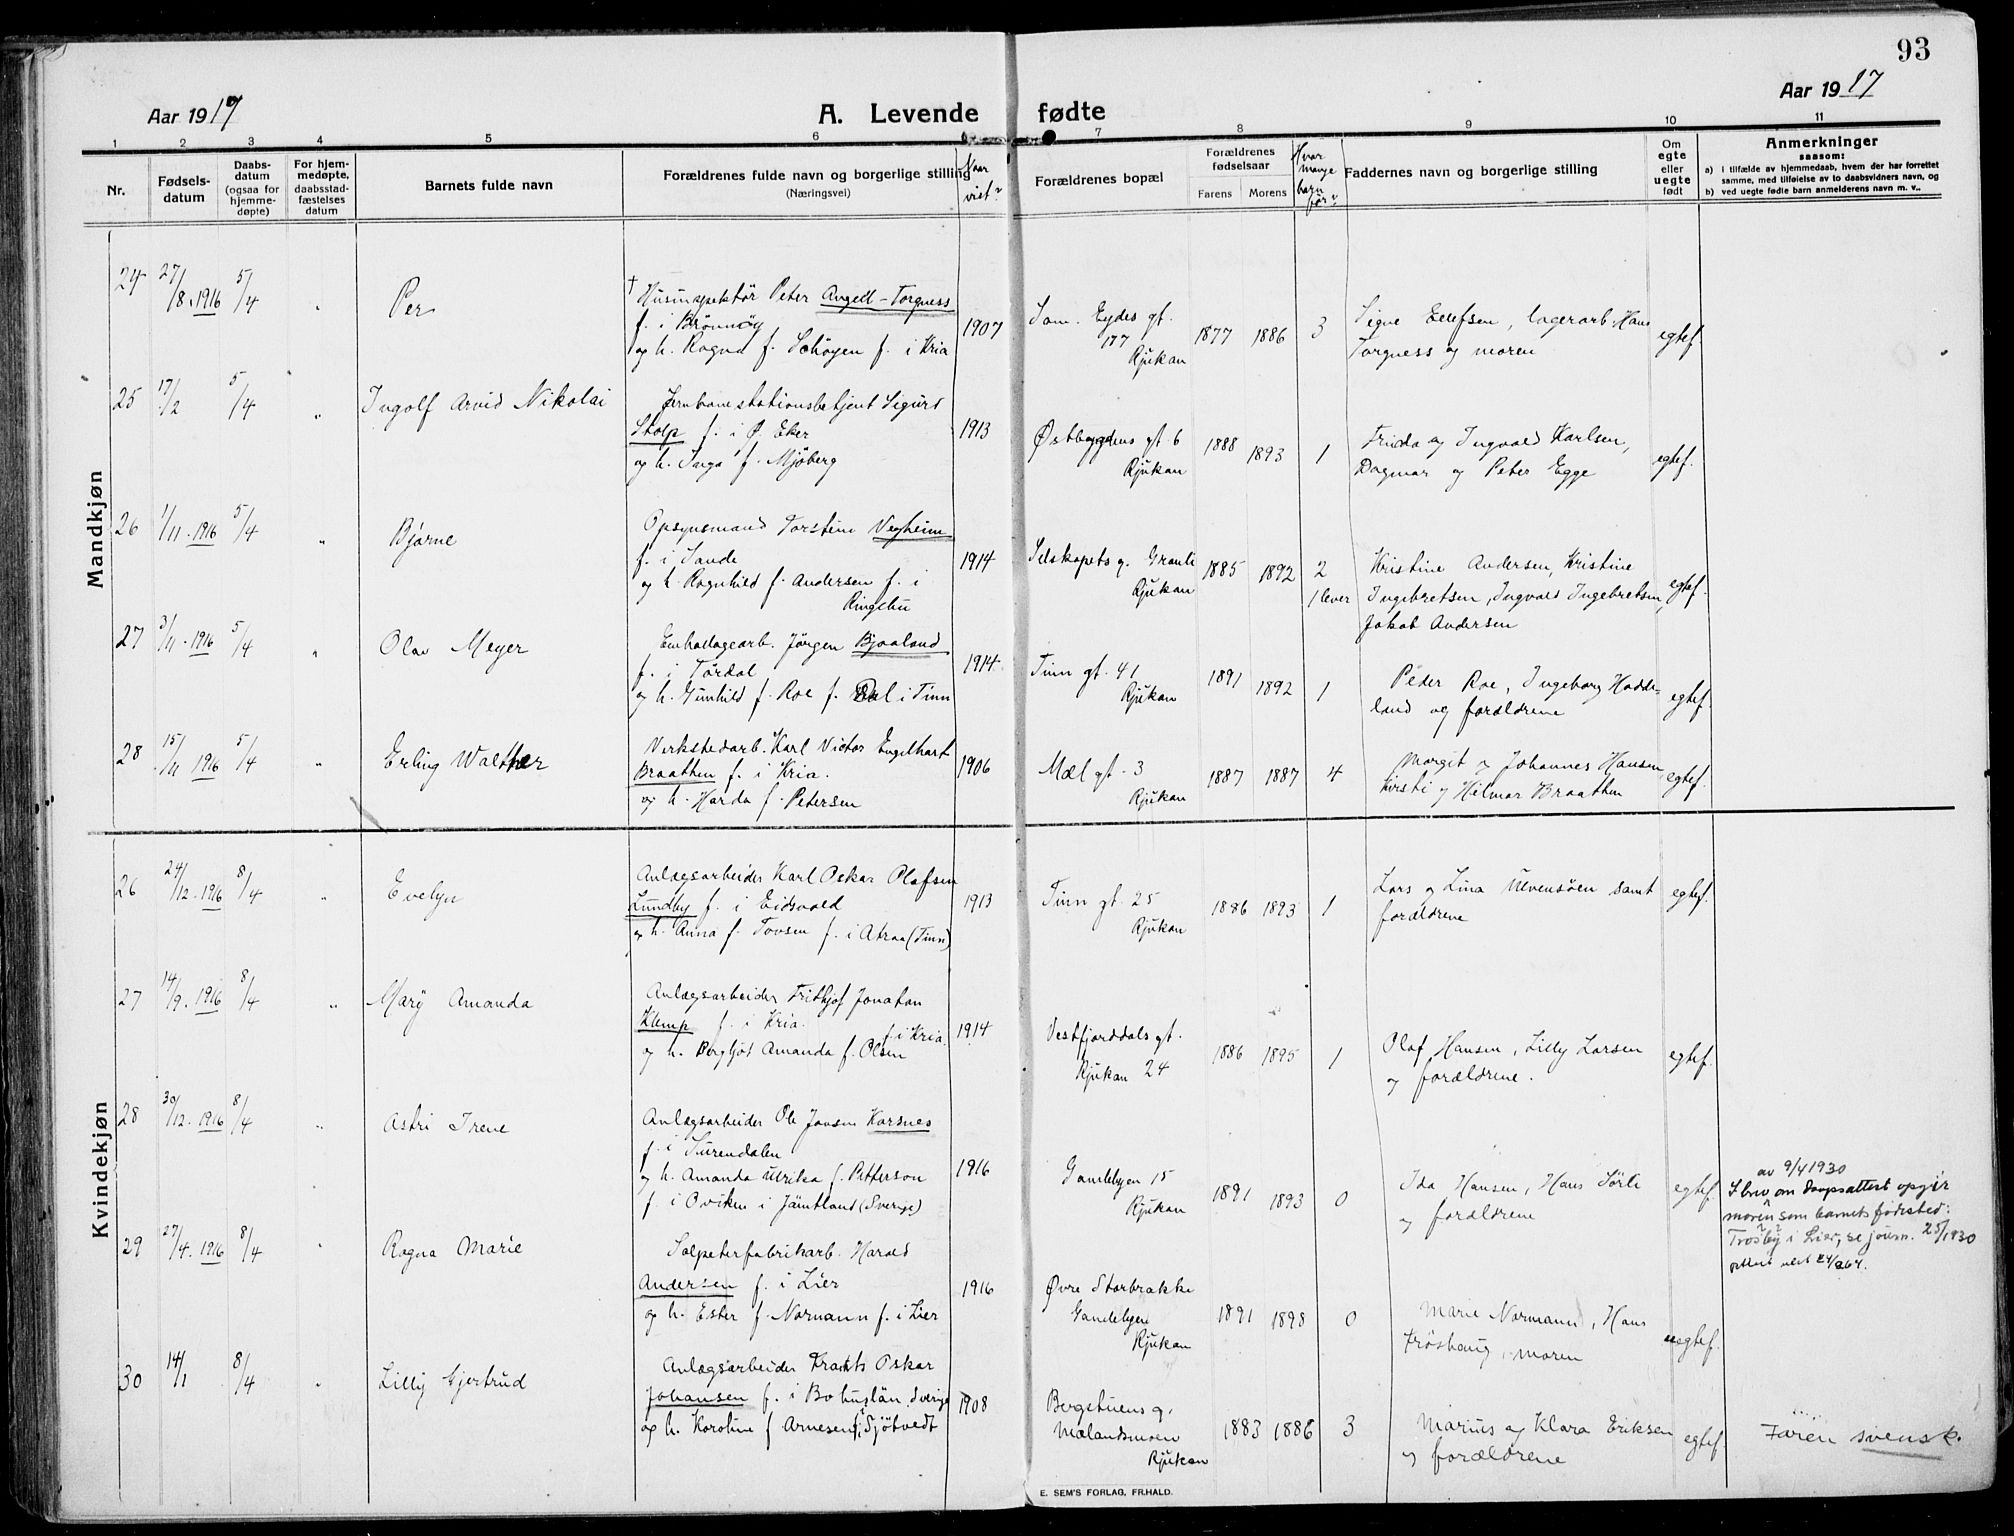 93
Aar 1917
A. Levende fødte
Aar 1917
1 2 3 4 5 6 7 8 9 10 11
Nr.
Fødsels-datum
Daabs-datum (ogsaa for hjemme-døpte)
For hjem-medøpte, daabsstad-fæstelses datum
Barnets fulde navn
Forældrenes fulde navn og borgerlige stilling (Næringsvei)
Naar viet?
Forældrenes bopæl
Forældrenes fødselsaar
Farens Morens
Hvor mange barn før?
Faddernes navn og borgerlige stilling
Om egte eller uegte født
Anmerkninger
saasom:
a) i tilfælde av hjemmedaab, hvem der har forrettet samme, med tilføielse av to daabsvidners navn, og
b) ved uegte fødte barn anmelderens navn m. v..
Mandkjøn
24 27/8.1916 5/4 " Per
† Husinspektør Peter Angell-Torgness
f. i Brönnöy
og h. Ragna f. Schöyen f. i Kria
1907
Sam. Eydes gt. 177 Rjukan
1877 1886 3
Signe Ellefsen, lagerarb. Hans
Torgness og moren
egtef.
25 17/2 5/4 " Ingolf Arvid Nikolai
Jernbanestationsbetjent Sigurd
Stolp f. i Ø. Eker
og h. Inga f. Mjöberg
1913
Østbygdens gt. 6 Rjukan
1888 1893 1
Frida og Ingvald Karlsen,
Dagmar og Peter Egge
egtef.
26 1/11.1916 5/4 " Bjarne
Opsynsmand Torstein Vegheim
f. i Sande
og h. Ragnhild f. Andersen f. i
Ringebu
1914
Selskapets g. Granli Rjukan
1885 1892 2
1 lever
Kristine Andersen, Kristine
Ingebretsen, Ingvald Ingebretsen,
Jakob Andersen
egtef.
27 3/11.1916 5/4 " Olav Meyer
Emballagearb. Jörgen Bjaaland
f. i Tördal
og h. Gunhild f. Roe f. Dal i Tinn
1914
Tinn gt. 41 Rjukan
1891 1892 1
Peder Roe, Ingeborg Hadde-
land og forældrene
egtef.
28 15/11 1916 5/4 " Erling Walther
Verkstedarb. Karl Victor Engelhart
Braathen f. i Kria.
og h. Harda f. Petersen
1906
Mæl gt. 3 Rjukan
1887 1887 4
Margit og Johannes Hansen,
Kirsti og Hilmar Braathen
egtef.
Kvindekjøn
26 24/12.1916 8/4 " Evelyn
Anlægsarbeider Karl Oskar Olafsen
Lundby f. i Eidsvold
og h. Anna f. Tovsen f. i Atraa (Tinn)
1913
Tinn gt. 25 Rjukan
1886 1893 1
Lars og Lina Ulvensöen samt
forældrene
egtef.
27 14/9.1916 8/4 " Mary Amanda
Anlægsarbeider Fritkjof Jonatan
Klemp f. i Kria.
og h. Bergljot Amanda f. Olsen f. i Kria.
1914
Vestfjorddals gt. Rjukan 24
1886 1895 1
Olaf Hansen, Lilly Larsen
og forældrene.
egtef.
28 30/12.1916 8/4 " Astri Irene
Anlægsarbeider Ole Jonsen Karsnes
f. i Surendalen
og h. Amanda Ulrika f. Petterson
f. i Oviken i Jämtland (Sverige)
1916
Gamlebyen 15 Rjukan
1891 1893 0
Ida Hansen, Hans Sörli
og forældrene
egtef.
29 27/4.1916 8/4 " Ragna Marie
Salpeterfabrikarb. Harald
Andersen f. i Lier
og h. Ester f. Normann f. i Lier
1916
Øvre Storbrakke Gamlebyen Rjukan
1891 1898 0
Marie Normann, Hans
Fröshaug, moren
uegtef.
av 9/4 1930
I brev om daapsattest opgir
moren som barnets fødested:
Trosby i Lier, se journ. 25/1930
30 14/1 8/4 " Lilly Gjertrud
Anlægsarbeider Frants Oskar
Johansen f. i Bohuslän, Sverige
og h. Karoline f. Arnesen f. i Sjötvedt
1908
Bergstuens g. Mælandsmoen Rjukan
1883 1886 3
Marius og Klara Eriksen
og forældrene
egtef.
Faren svensk.
E. SEM'S FORLAG, FR.HALD.